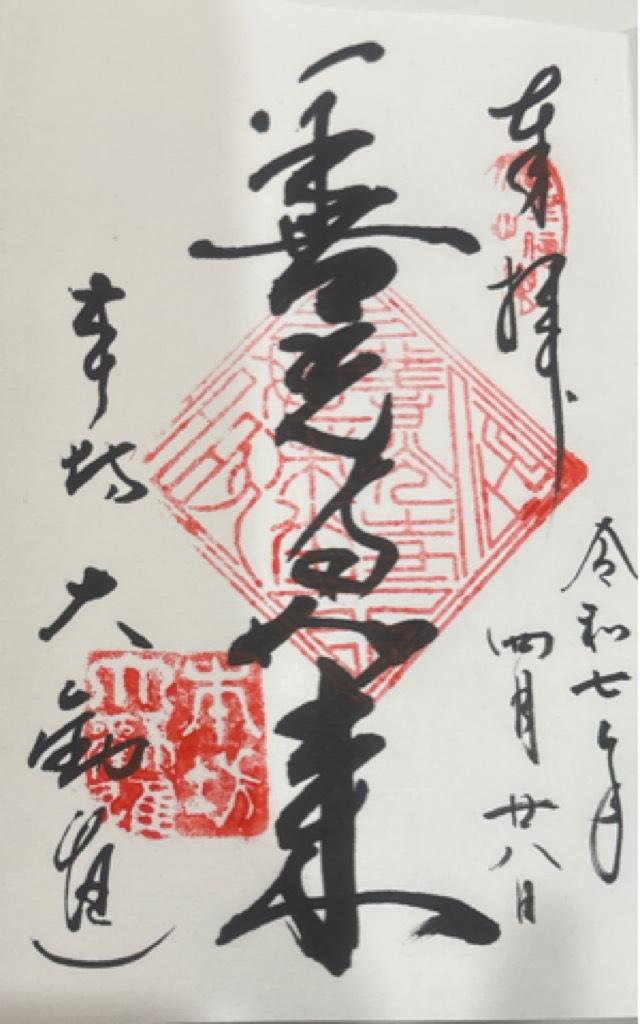 奉拝
令和七年
四月廿八日
善光寺如来
本坊 大勧進
本坊
大勧進